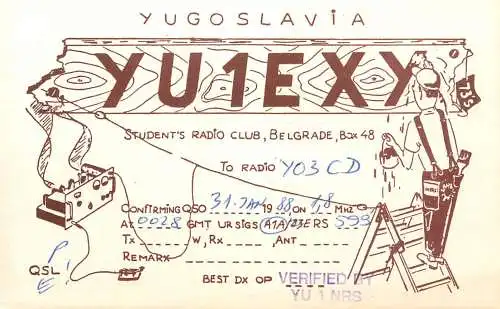 YUGOSLAVIA
YU1EXY
73's
STUDENT'S RADIO CLUB, BELGRADE, BOX 48
TO RADIO YO3CD
CONFIRMING QSO 31. JAN 1988, ON 1,8 MHz
AT 0028 GMT UR SIGS A1A/J3E RS 599
TX W, RX , ANT
REMARX
QSL
BEST DX OP VERIFIED BY
YU 1 NRS